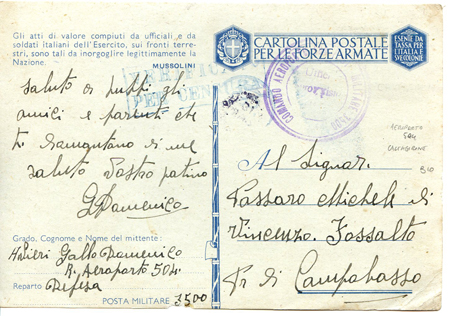 Gli atti di valore compiuti da ufficiali e da
soldati italiani dell'Esercito, sui fronti terre-
stri, sono tali da inorgoglire legittimamente la
Nazione.
MUSSOLINI
CARTOLINA POSTALE
PER LE FORZE ARMATE
ESENTE DA
TASSA PER
L'ITALIA E
SUE COLONIE
VERIFICATO
PER CENSURA
COMANDO
MILITARE
saluto a tutti gli
amici e parenti che
di me
saluto Vostro
G Domenico
Grado, Cognome e Nome del mittente:
Avieri Gallo Domenico
R. Aeroporto 504
Reparto Difesa
POSTA MILITARE 3500
Al Signor
Passaro Michele di
Vincenzo Fossalto
Pr di Campobasso
AEROPORTO
504